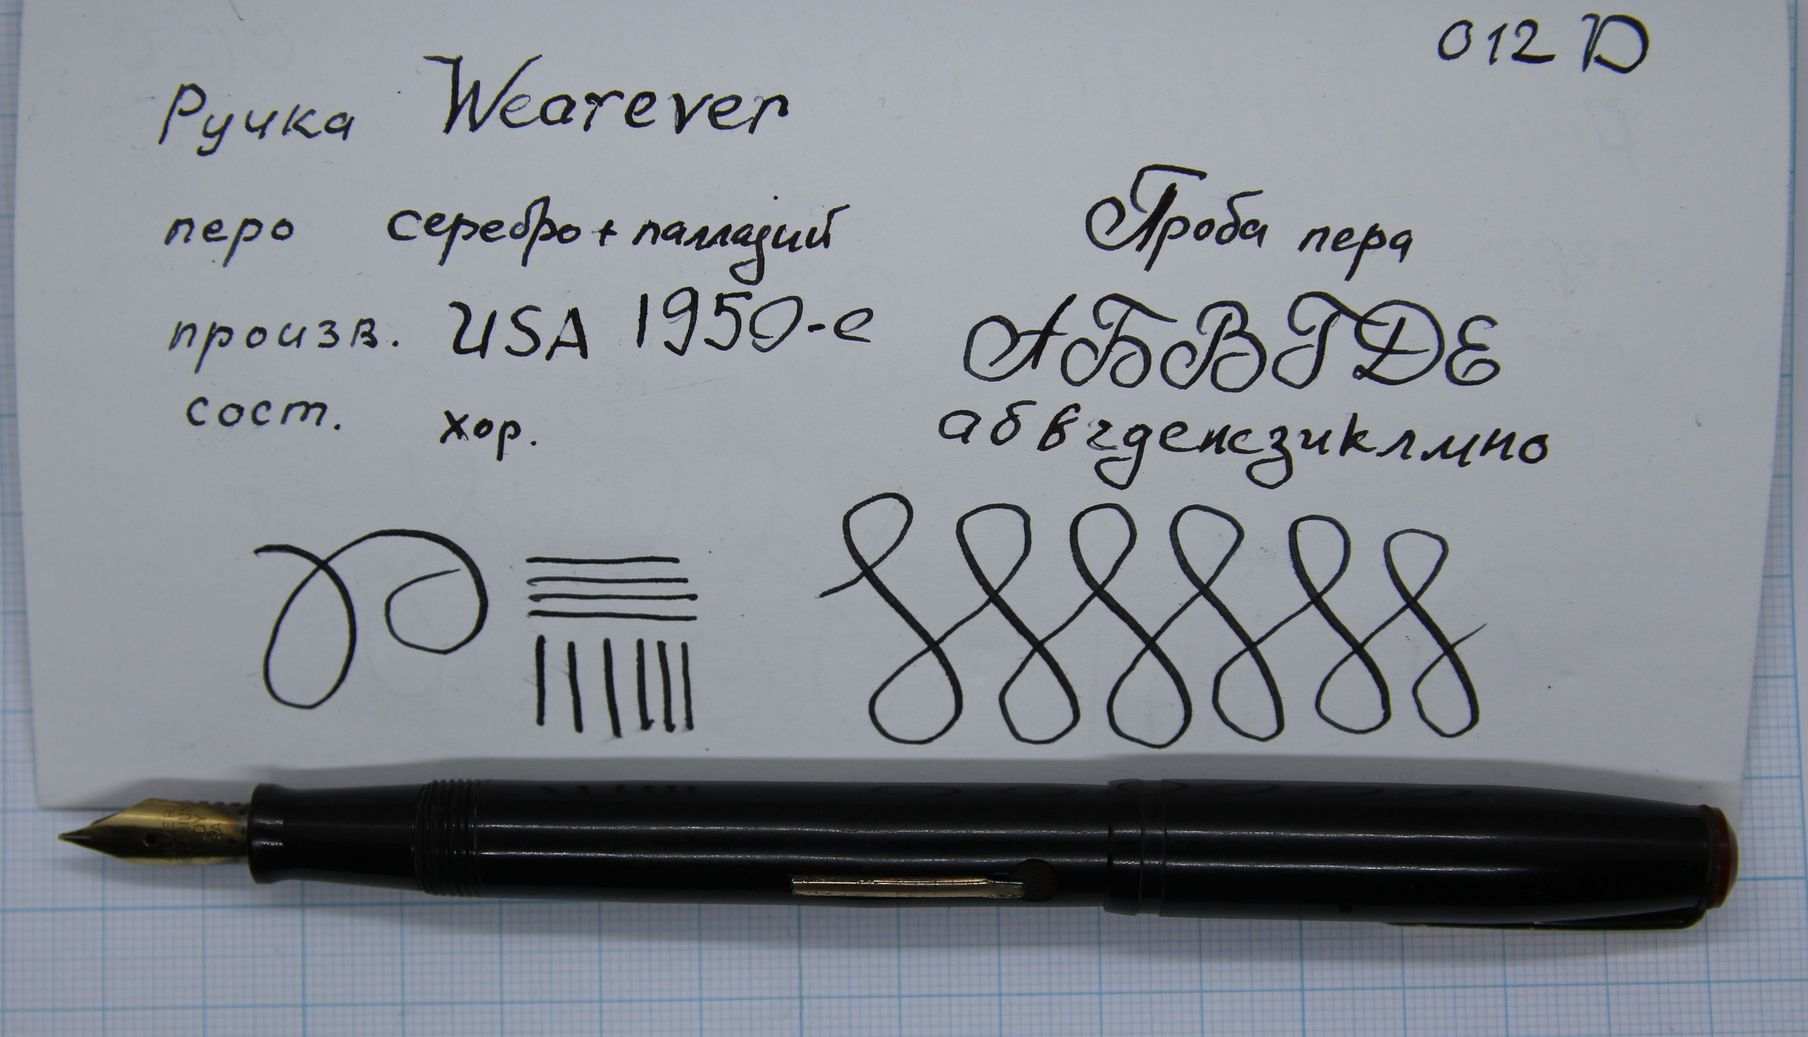 012 D
Ручка Wearever
перо серебро + палладий
произв. USA 1950-е
сост. хор.
Проба пера
АБВГДЕ
абвгдежзиклмно